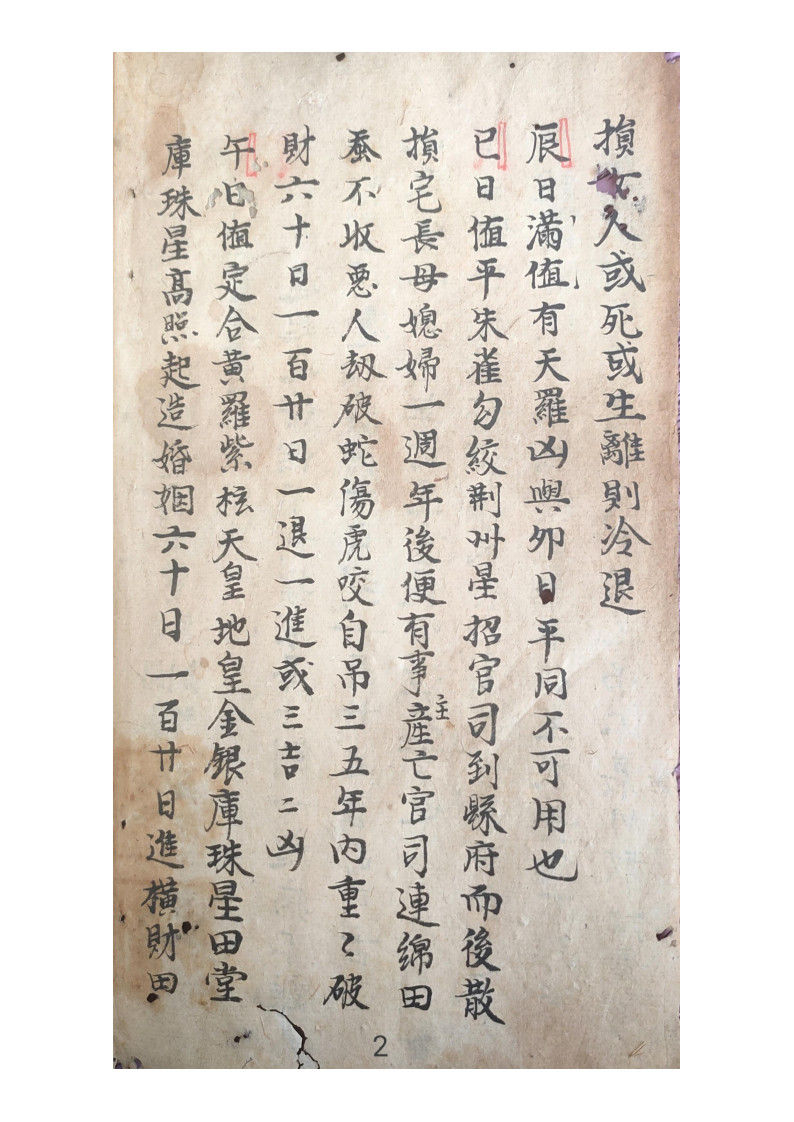 損女人或死或生離則冷退
辰日滿值有天羅凶與卯日平同不可用也
已日值平朱雀勾絞荆州星招官司到縣府而後散
損宅長母媳婦一週年後便有事主産亡官司連綿田
蚕不收惡人刼破蛇傷虎咬自吊三五年内重〻破
財六十日一百廿日一退一進或三吉二凶
午日值定合黄羅紫柱天皇地皇金銀庫珠星田堂
庫珠星髙照起造婚姻六十日一百廿日進横財田
2